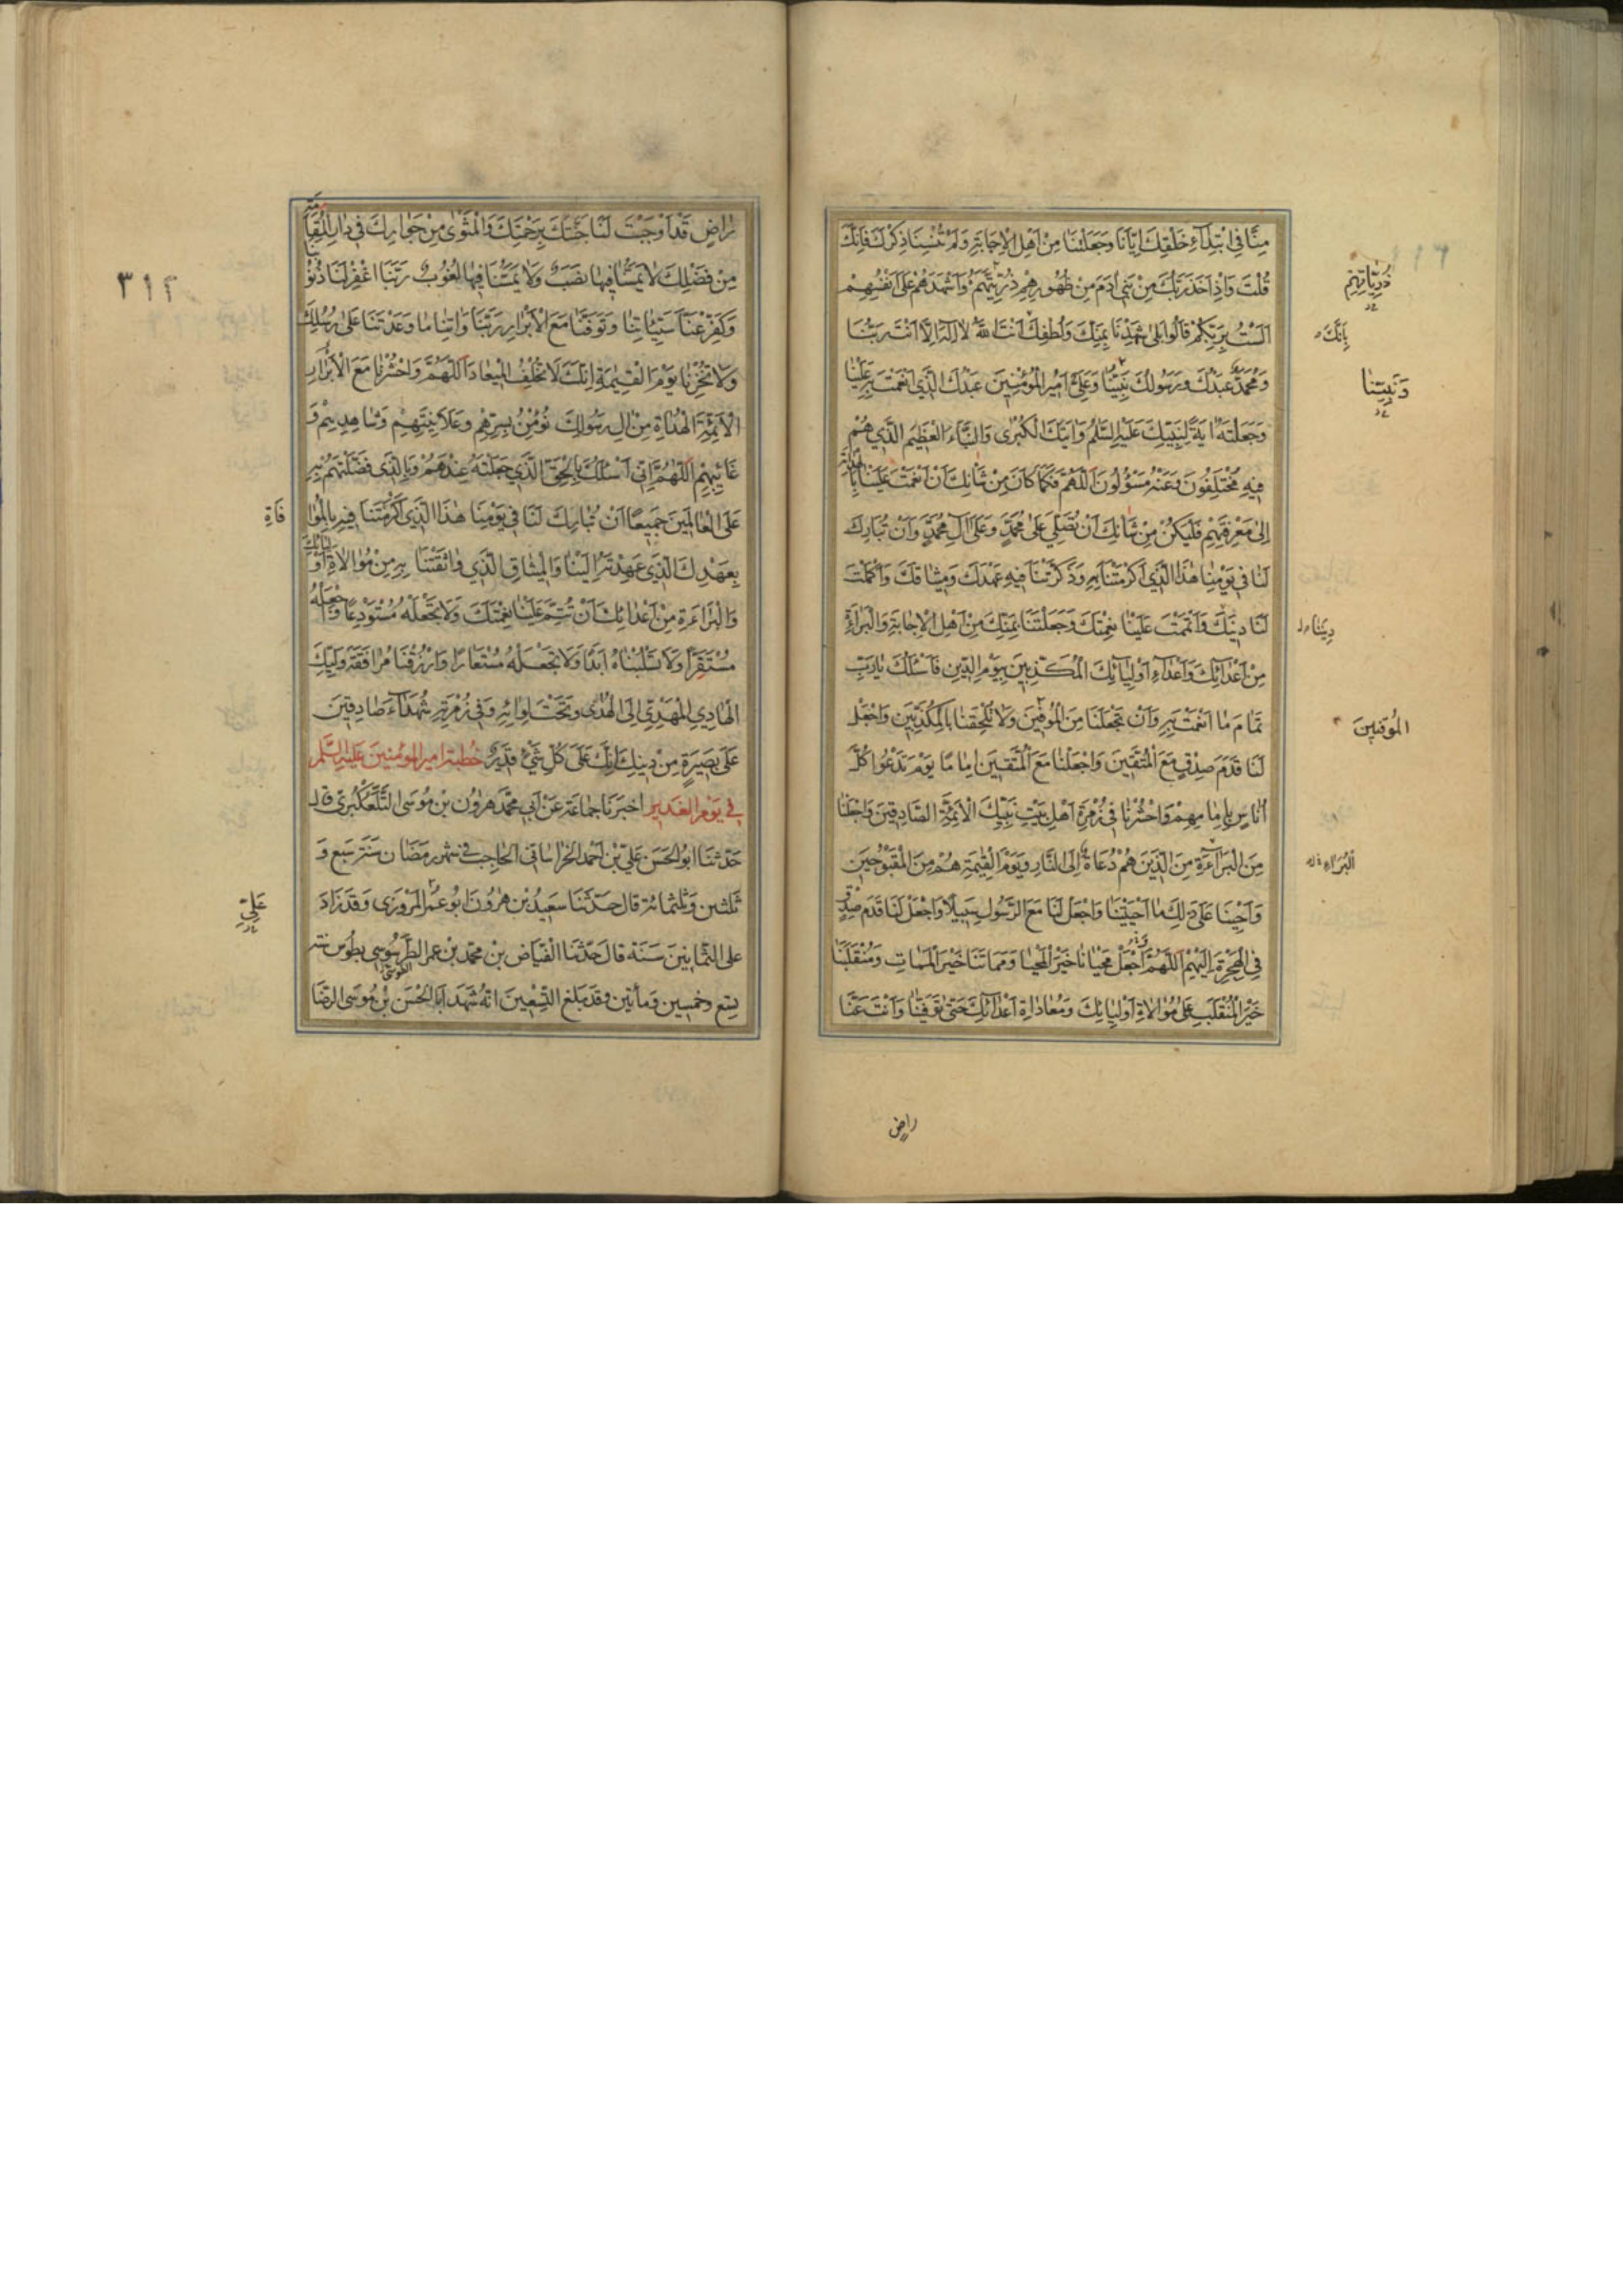 مِنَّا فِي ابْتِدَاءِ خَلْقِكَ اِيّانَا وَجَعَلْتَنَا مِنْ اَهْلِ الْاِجَابَةِ وَلَمْ تُنْسِنَا ذِكْرَكَ فَاِنَّكَ
قُلْتَ وَاِذْ اَخَذَ رَبُّكَ مِنْ بَنِي اٰدَمَ مِنْ ظُهُورِهِمْ ذُرِّيَّتَهُمْ وَاَشْهَدَهُمْ عَلٰى اَنْفُسِهِمْ
ذُرِّيَّاتِهِمْ
اَلَسْتُ بِرَبِّكُمْ قَالُوا بَلٰى شَهِدْنَا بِمَنِّكَ وَلُطْفِكَ اَنْتَ اللهُ لَا اِلٰهَ اِلَّا اَنْتَ رَبُّنَا
بِاَنَّكَ
وَمُحَمَّدٌ عَبْدُكَ وَرَسُولُكَ نَبِيُّنَا وَعَلِيٌّ اَمِيرُ الْمُؤْمِنِينَ عَبْدُكَ الَّذِي اَنْعَمْتَ بِهِ عَلَيْنَا
وَنَبِيُّنَا
وَجَعَلْتَهُ اٰيَةً لِنَبِيِّكَ عَلَيْهِ السَّلٰمُ وَاٰيَتَكَ الْكُبْرٰى وَالنَّبَأَ الْعَظِيمَ الَّذِي هُمْ
فِيهِ مُخْتَلِفُونَ وَعَنْهُ مَسْؤُلُونَ اَللّٰهُمَّ فَكَمَا كَانَ مِنْ شَأْنِكَ اَنْ اَنْعَمْتَ عَلَيْنَا بِالْهِدَايَةِ
اِلٰى مَعْرِفَتِهِمْ فَلْيَكُنْ مِنْ شَأْنِكَ اَنْ تُصَلِّيَ عَلٰى مُحَمَّدٍ وَعَلٰى اٰلِ مُحَمَّدٍ وَاَنْ تُبَارِكَ
لَنَا فِي يَوْمِنَا هٰذَا الَّذِي اَكْرَمْتَنَا بِهِ وَذَكَّرْتَنَا فِيهِ عَهْدَكَ وَمِيثَاقَكَ وَاَكْمَلْتَ
لَنَا دِينَكَ وَاَتْمَمْتَ عَلَيْنَا نِعْمَتَكَ وَجَعَلْتَنَا بِمَنِّكَ مِنْ اَهْلِ الْاِجَابَةِ وَالْبَرَاءَةِ
دِينَنَا
مِنْ اَعْدَائِكَ وَاَعْدَاءِ اَوْلِيَائِكَ الْمُكَذِّبِينَ بِيَوْمِ الدِّينِ فَاَسْئَلُكَ يَا رَبِّ
تَمَامَ مَا اَنْعَمْتَ بِهِ وَاَنْ تَجْعَلَنَا مِنَ الْمُوفِينَ وَلَا تُلْحِقْنَا بِالْمُكَذِّبِينَ وَاجْعَلْ
الْمُوقِنِينَ
لَنَا قَدَمَ صِدْقٍ مَعَ الْمُتَّقِينَ وَاجْعَلْنَا مَعَ الْمُتَّقِينَ اِمَامًا يَوْمَ تَدْعُوا كُلَّ
اُنَاسٍ بِاِمَامِهِمْ وَاحْشُرْنَا فِي زُمْرَةِ اَهْلِ بَيْتِ نَبِيِّكَ الْاَئِمَّةِ الصَّادِقِينَ وَاجْعَلْنَا
مِنَ الْبَرَاءَةِ مِنَ الَّذِينَ هُمْ دُعَاةٌ اِلَى النَّارِ وَيَوْمَ الْقِيٰمَةِ هُمْ مِنَ الْمَقْبُوحِينَ
الْبُرَاءِ
وَاَحْيِنَا عَلٰى ذٰلِكَ مَا اَحْيَيْتَنَا وَاجْعَلْ لَنَا مَعَ الرَّسُولِ سَبِيلًا وَاجْعَلْ لَنَا قَدَمَ صِدْقٍ
فِي الْهِجْرَةِ اِلَيْهِمْ اَللّٰهُمَّ اجْعَلْ مَحْيَانَا خَيْرَ الْمَحْيَا وَمَمَاتَنَا خَيْرَ الْمَمَاتِ وَمُنْقَلَبَنَا
خَيْرَ الْمُنْقَلَبِ عَلٰى مُوَالَاةِ اَوْلِيَائِكَ وَمُعَادَاةِ اَعْدَائِكَ حَتّٰى تَوَفَّيْنَا وَاَنْتَ عَنَّا
راضٍ
رَاضٍ قَدْ اَوْجَبْتَ لَنَا جَنَّتَكَ بِرَحْمَتِكَ وَالْمَثْوٰى مِنْ جِوَارِكَ فِي دَارِ الْمُقَامَةِ
مِنْ فَضْلِكَ لَا يَمَسُّنَا فِيهَا نَصَبٌ وَلَا يَمَسُّنَا فِيهَا لُغُوبٌ رَبَّنَا اغْفِرْ لَنَا ذُنُوبَنَا
٣١٢
وَكَفِّرْ عَنَّا سَيِّئَاتِنَا وَتَوَفَّنَا مَعَ الْاَبْرَارِ رَبَّنَا وَاٰتِنَا مَا وَعَدْتَنَا عَلٰى رُسُلِكَ
وَلَا تُخْزِنَا يَوْمَ الْقِيٰمَةِ اِنَّكَ لَا تُخْلِفُ الْمِيعَادَ اَللّٰهُمَّ وَاحْشُرْنَا مَعَ الْاَبْرَارِ
الْاَئِمَّةِ الْهُدَاةِ مِنْ اٰلِ رَسُولِكَ نُؤْمِنُ بِسِرِّهِمْ وَعَلَانِيَتِهِمْ وَشَاهِدِهِمْ وَ
غَائِبِهِمْ اَللّٰهُمَّ اِنِّي اَسْئَلُكَ بِالْحَقِّ الَّذِي جَعَلْتَهُ عِنْدَهُمْ وَبِالَّذِي فَضَّلْتَهُمْ بِهِ
عَلَى الْعَالَمِينَ جَمِيعًا اَنْ تُبَارِكَ لَنَا فِي يَوْمِنَا هٰذَا الَّذِي اَكْرَمْتَنَا فِيهِ بِالْمُوَا
فَاةِ
بِعَهْدِكَ الَّذِي عَهِدْتَهُ اِلَيْنَا وَالْمِيثَاقِ الَّذِي وَاثَقْتَنَا بِهِ مِنْ مُوَالَاةِ اَوْلِيَائِكَ
وَالْبَرَاءَةِ مِنْ اَعْدَائِكَ اَنْ تُتِمَّ عَلَيْنَا نِعْمَتَكَ وَلَا تَجْعَلْهُ مُسْتَوْدَعًا وَاجْعَلْهُ
مُسْتَقَرًّا وَلَا تَسْلُبْنَاهُ اَبَدًا وَلَا تَجْعَلْهُ مُسْتَعَارًا وَارْزُقْنَا مُرَافَقَةَ وَلِيِّكَ
الْهَادِي الْمَهْدِيِّ اِلَى الْهُدٰى وَتَحْتَ لِوَائِهِ وَفِي زُمْرَتِهِ شُهَدَاءَ صَادِقِينَ
عَلٰى بَصِيرَةٍ مِنْ دِينِكَ اِنَّكَ عَلٰى كُلِّ شَيْءٍ قَدِيرٌ خُطْبَة اَمِير الْمُؤْمِنِينَ عَلَيْهِ السَّلٰمُ
فِي يَوْمِ الْغَدِيرِ اَخْبَرَنَا جَمَاعَةٌ عَنْ اَبِي مُحَمَّدٍ هٰرُونَ بْنِ مُوسَى التَّلَّعُكْبَرِيِّ قال
حَدَّثَنَا ابُو الْحَسَن عَلِيُّ بْنُ اَحْمَد الْخُرَاسَانِي الْحَاجِب فِي شهر رَمَضَان سَنَةَ سَبْع وَ
ثَلثين وَثَلثمائة قال حَدَّثَنَا سَعِيدُ بْن هٰرُونَ اَبُو عُمَر الْمَرْوَزِي وَقَدْ زَادَ
عَلِيٍّ
علَى الثَّمَانِينَ سَنَةً قال حَدَّثَنَا الْفَيَّاض بْن مُحَمَّد بْن عمر الطَّرَسُوسِي بِطُوس سنة
الطوسي
تِسْع وخَمسين وَمأتين وقَد بَلَغَ التِّسْعِينَ انَّهُ شَهِدَ اَبَا الْحَسَن بْن مُوسَى الرِّضَا